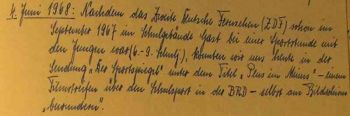 4. Juni 1968: Nachdem das Zweite Deutsche Fernsehen (ZDF) schon im
September 1967 im Schulgebäude Gast bei einer Sportstunde mit
den Jungen war (6.-9. Schulj), konnten wir uns heute in der
Sendung „Der Sportspiegel" unter dem Titel „Plus im Minus" – einem
Filmstreifen über den Schulsport in der BRD – selbst am Bildschirm
„bewundern".